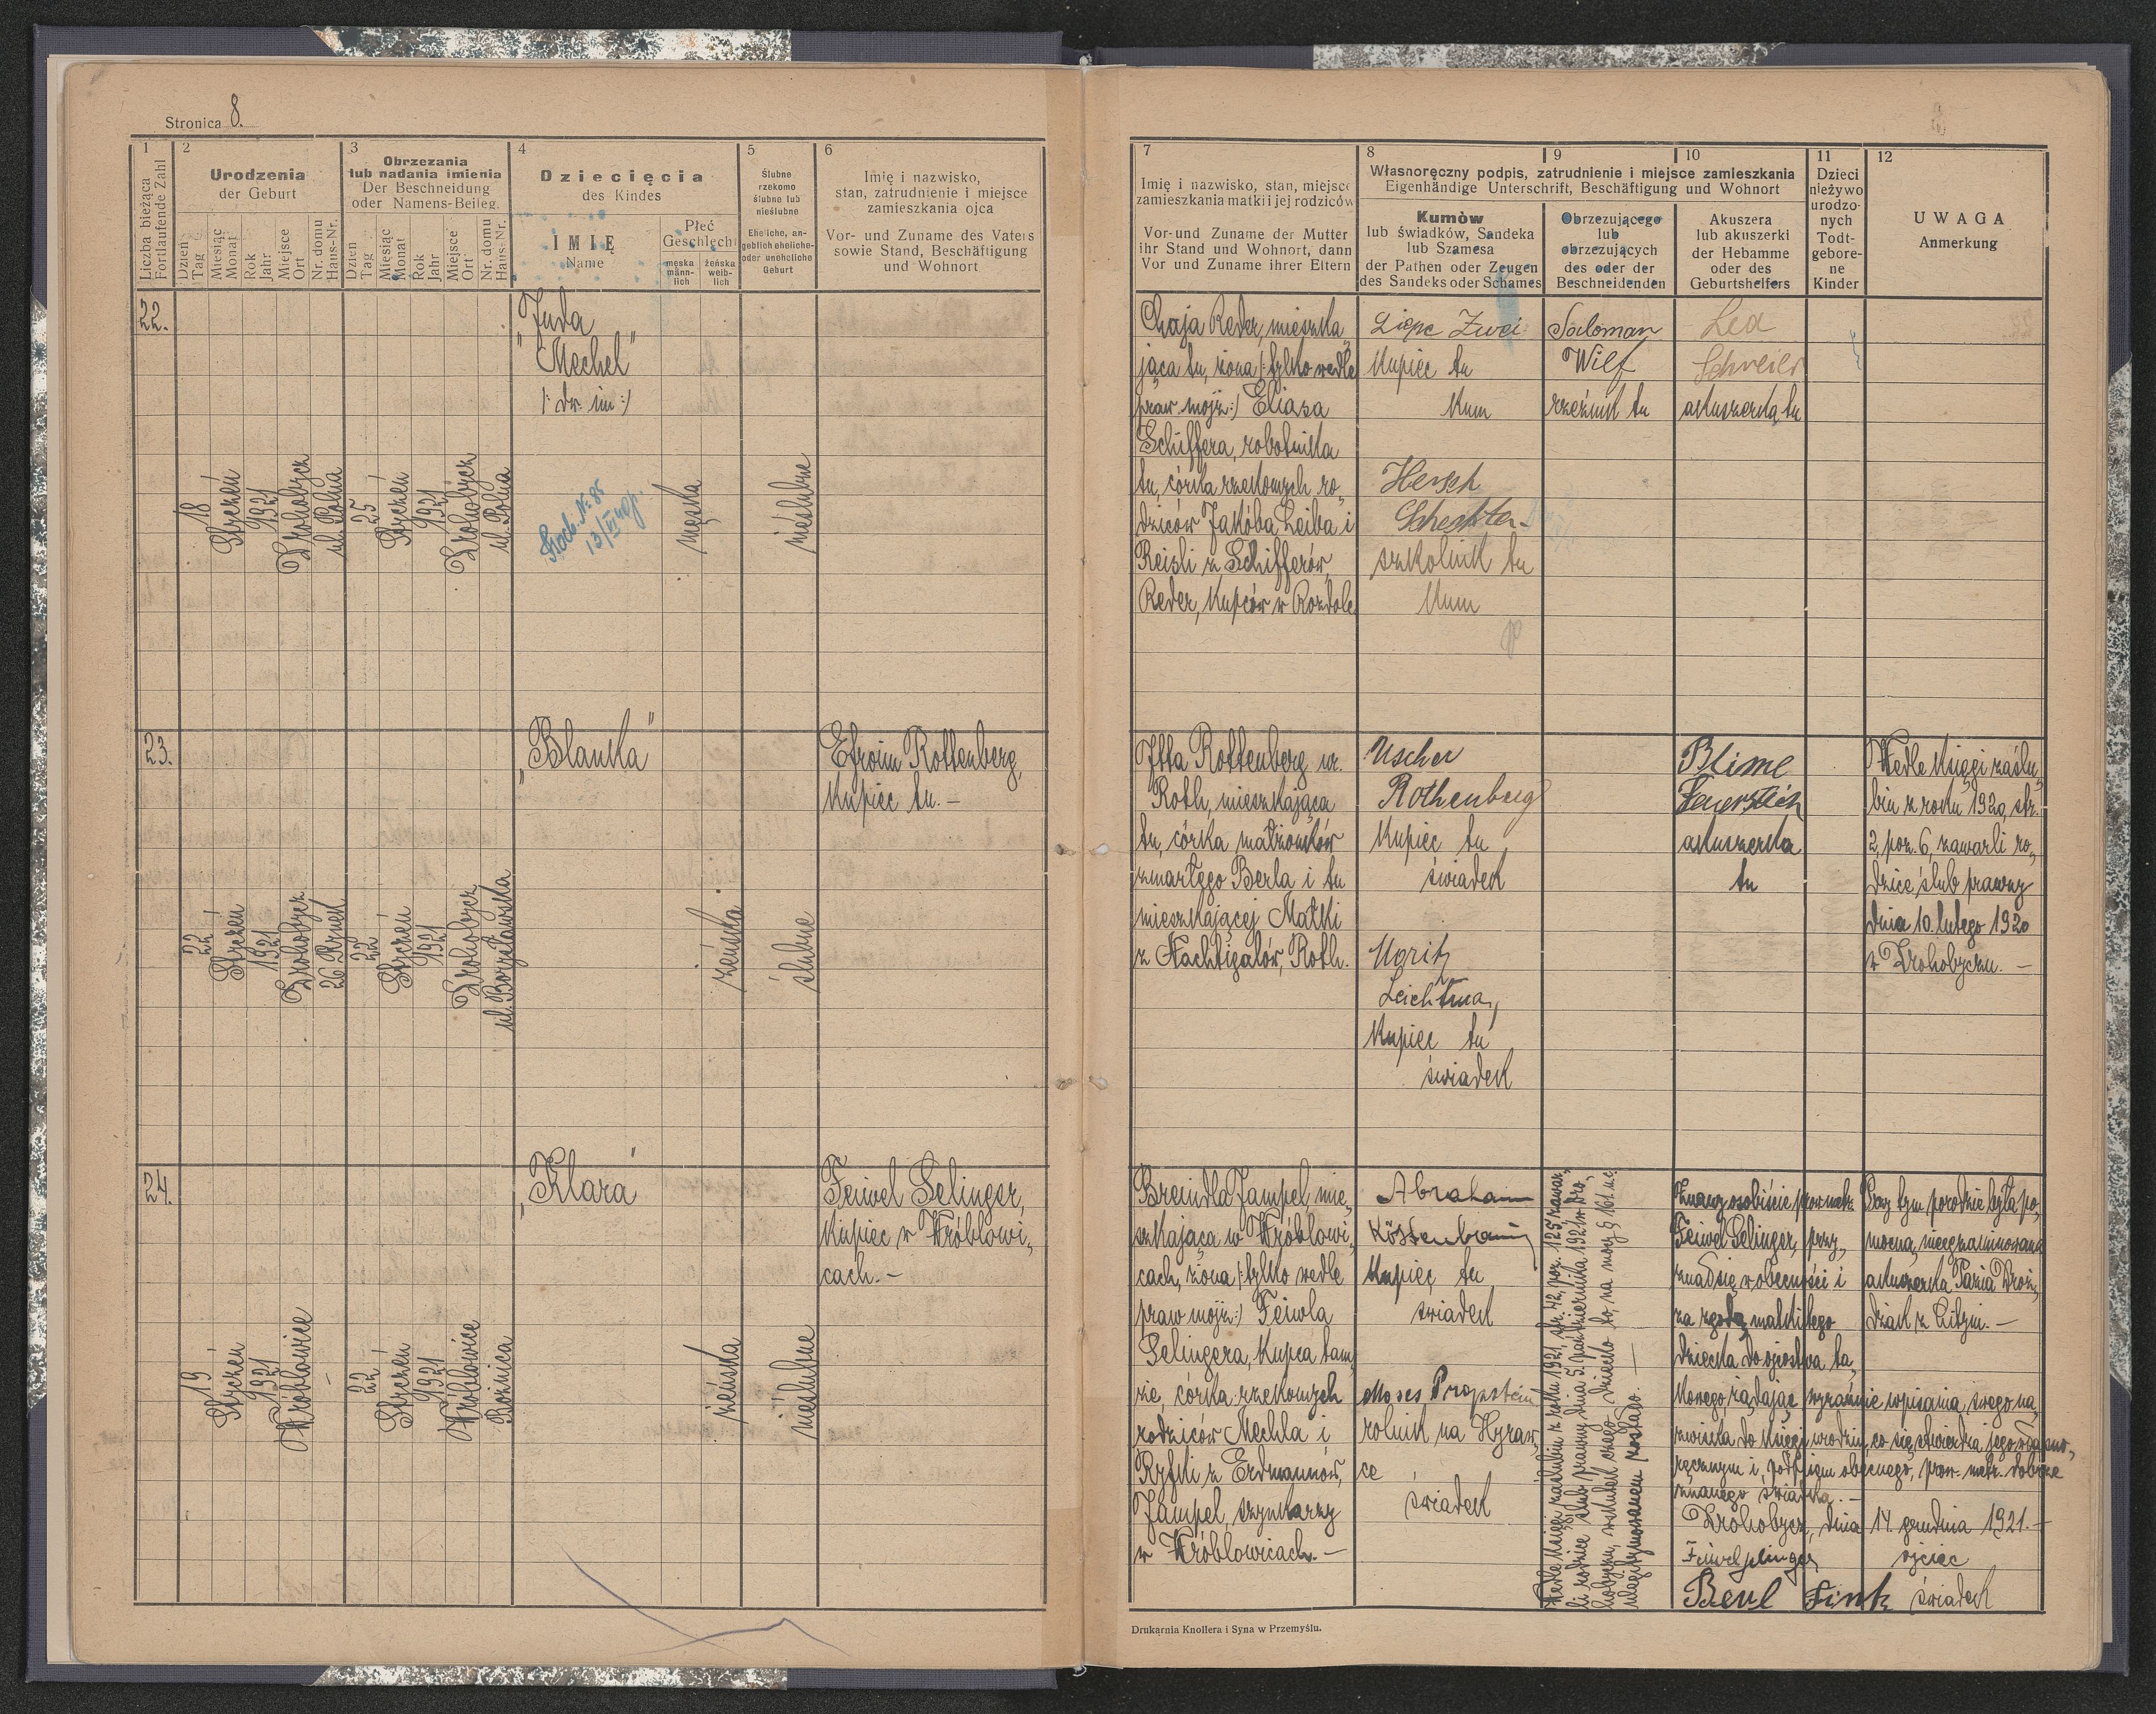 Stronica 8.
1
Liczba bieżąca
Fortlaufende Zahl
2
Urodzenia
der Geburt
Dzień
Tag
Miesiąc
Monat
Rok
Jahr
Miejsce
Ort
Nr. domu
Haus-Nr.
3
Obrzezania
lub nadania imienia
Der Beschneidung
oder Namens-Beileg.
Dzień
Tag
Miesiąc
Monat
Rok
Jahr
Miejsce
Ort
Nr. domu
Haus-Nr.
4
Dziecięcia
des Kindes
IMIĘ
Name
Płeć
Geschlecht
męska
männ-
lich
żeńska
weib-
lich
5
Ślubne
rzekomo
ślubne lub
nieślubne
Eheliche, an-
geblich eheliche-
oder unehliche
Geburt
6
Imię i nazwisko,
stan, zatrudnienie i miejsce
zamieszkania ojca
Vor- und Zuname des Vaters
sowie Stand, Beschäftigung
und Wohnort
7
Imię i nazwisko, stan, miejsce
zamieszkania matki i jej rodziców
Vor-und Zuname der Mutter
ihr Stand und Wohnort, dann
Vor und Zuname ihrer Eltern
8
9
10
Własnoręczny podpis, zatrudnienie i miejsce zamieszkania
Eigenhändige Unterschrift, Beschäftigung und Wohnort
Kumów
lub świadków, Sandeka
lub Szamesa
der Pathen oder Zeugen
des Sandeks oder Schames
Obrzezującego
lub
obrzezujących
des oder der
Beschneidenden
Akuszera
lub akuszerki
der Hebamme
oder des
Geburtshelfers
11
Dzieci
nieżywo
urodzo-
nych
Todt-
gebore-
ne
Kinder
12
UWAGA
Anmerkung
22.
18
Styczeń
1921
Drohobycz
ul. Polna
25
Styczeń
1921
Drohobycz
ul. Polna
Juda
"Mechel"
/: dw. im :/
męska
nieślubne
Chaja Reder, mieszka„
jąca tu, żona /:tylko wedle
praw mojż:/ Eliasza
Schiffera, robotnika
tu, córka rzekomych ro„
dziców Jakóba Leiba i
Reisli z Schifferów
Reder, kupców w Rozdole
Kupiec tu
Kum
Hersch
Schechter
szkolnik tu
Kum
Saloman
Wilf
rzeźnik tu
Lea
Schreier
akuszerka tu
23.
22
Styczeń
1921
Drohobycz
26 Rynek
22
Styczeń
1921
Drohobycz
ul. Borysławska
„Blanka"
żeńska
ślubne
Efroim Rottenberg,
kupiec tu. –
Itta Rottenberg ur.
Roth, mieszkająca
tu, córka małżonków
zmarłego Berla i tu
mieszkającej Matki
z Nachtigalów, Roth.
Uscher
Rothenberg
Kupiec tu
świadek
Moritz
Kupiec tu
świadek
Blime
Feuerstein
akuszerka
tu
Wedle Księgi zaślu„
bin z roku 1920, str.
2, poz. 6, zawarli ro„
dzice ślub prawny
dnia 10. lutego 1920
w Drohobyczu. –
24.
19
Styczeń
1921
Wróblowice
–
22
Styczeń
1921
Wróblowice
Bożnica
„Klara"
żeńska
nieślubne
Feiwel Selinger,
kupiec w Wróblowi„
cach. –
Breindla Jampel, mie„
szkająca w Wróblowi„
cach, żona /:tylko wedle
praw mojż:/ Feiwla
Selingera, kupca tam„
że, córka rzekomych
rodziców Mechla i
Ryfki z Erdmannów,
Jampel, szynkarzy
w Wróblowicach. –
Abraham
Kupiec tu
świadek
Moses Propstein
rolnik na Hyraw„
ce
świadek
Wedle Księgi zaślubin z roku 1921, str. 42, poz. 125, zawar„
li rodzice ślub prawny dnia 5. października 1921 w Dro„
hobyczu, wskutek czego dziecko to, na mocy § 161 u.c.
ulegitymowanem zostało. –
Znany osobiście prow. metr.
Feiwel Selinger, przy„
znał się w obecności i
za zgodą matki tego
dziecka do ojcostwa ta„
kowego żądając wyraźnie wpisania swego na„
zwiska do Księgi urodzin, co się stwierdza jego własno„
ręcznym i podpisem obecnego, prow. metr. dobrze
znanego świadka. –
Drohobycz, dnia 14. grudnia 1921. –
Feiwel Selinger
ojciec
Berl Fink świadek
Przy tym porodzie była po„
mocną, nieegzaminowana
akuszerka Pazia Droż„
dziak z Litzni. –
Drukarnia Knollera i Syna w Przemyślu.